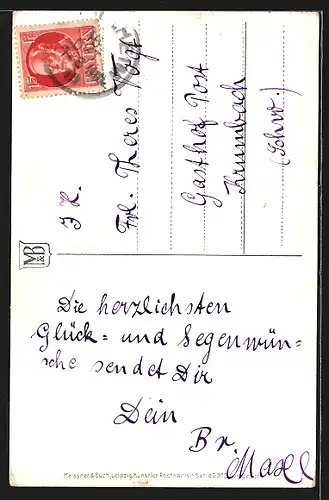 J H.
Frl. Theres Vogt
Gasthof Post
Krumbach
(Schw.)
BAYERN
M&B
Die herzlichsten
Glück= und Segenwün=
sche sendet Dir
Dein
Br.
Meissner & Buch, Leipzig. Künstler-Postkarten Serie